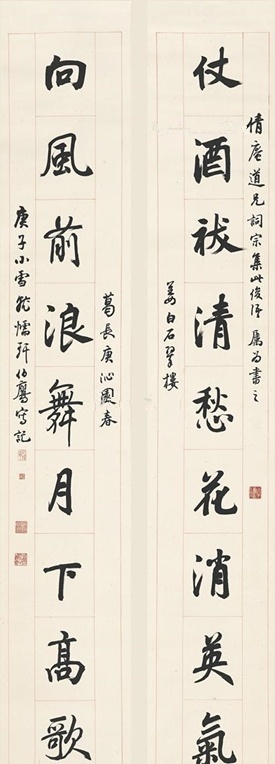 倩庵道兄詞宗集此俊語屬為書之
仗酒祓清愁花消英氣
姜白石翠樓
葛長庚沁園春
向風前浪舞月下高歌
庚子小雪 軒伯鷹寫記